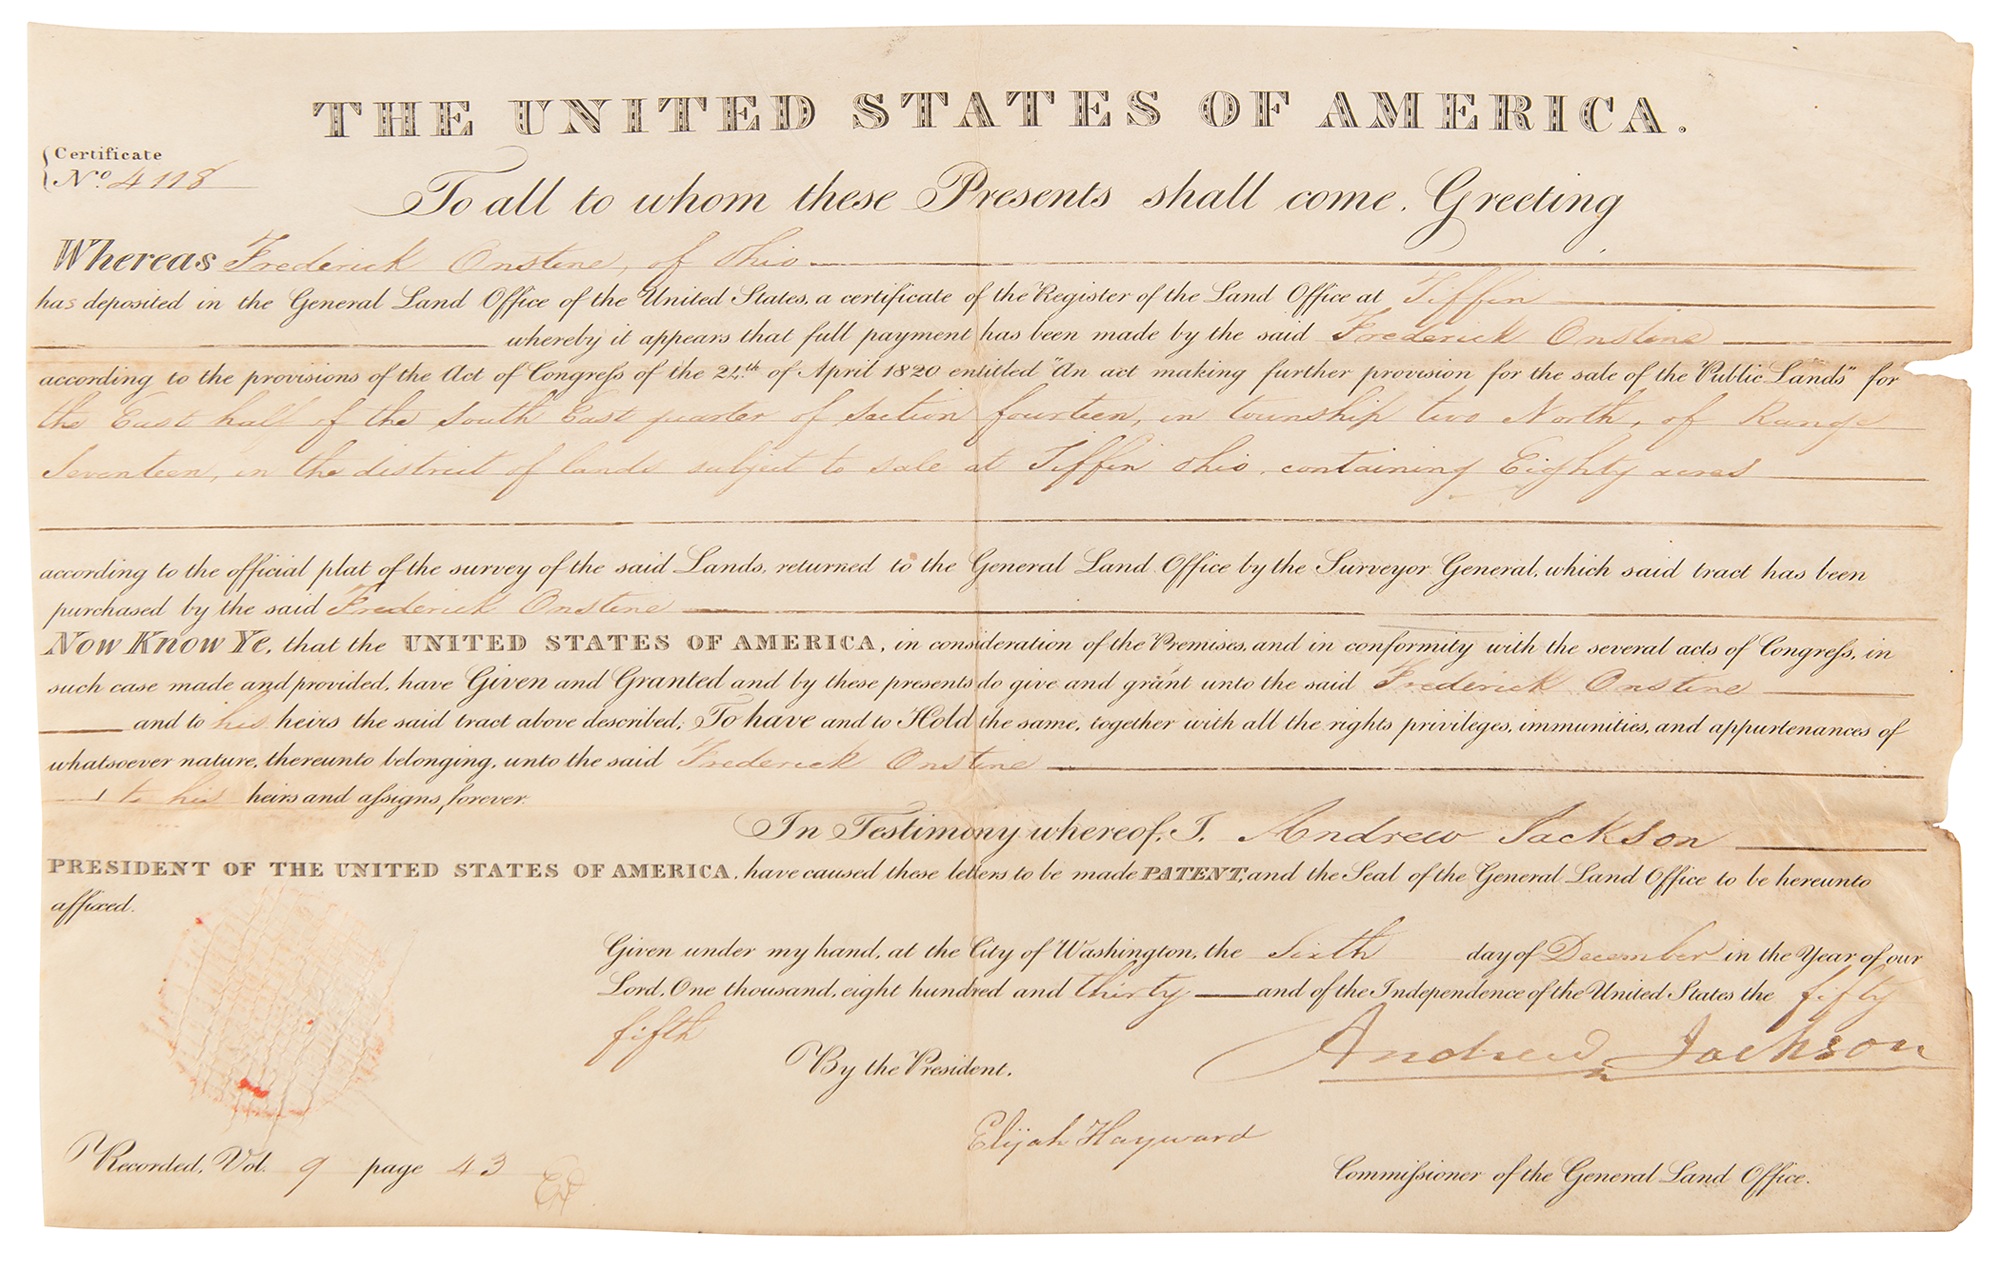 THE UNITED STATES OF AMERICA.
Certificate
No. 4118
To all to whom these Presents shall come. Greeting
Whereas Frederick Onstine, of Ohio
has deposited in the General Land Office of the United States, a certificate of the Register of the Land Office at Tiffin
whereby it appears that full payment has been made by the said Frederick Onstine
according to the provisions of the Act of Congreſs of the 24th of April 1820 entitled "An act making further provision for the sale of the Public Lands" for
the East half of the South East quarter of Section fourteen, in township two North, of Range
Seventeen, in the district of lands subject to sale at Tiffin Ohio. containing Eighty acres
according to the official plat of the survey of the said Lands, returned to the General Land Office by the Surveyor General, which said tract has been
purchased by the said Frederick Onstine
Now Know Ye, that the UNITED STATES OF AMERICA, in consideration of the Premises, and in conformity with the several acts of Congreſs, in
such case made and provided, have Given and Granted and by these presents do give and grant unto the said Frederick Onstine
and to his heirs the said tract above described; To have and to Hold the same, together with all the rights privileges, immunities, and appurtenances of
whatsoever nature, thereunto belonging, unto the said Frederick Onstine
to his heirs and aſsigns, forever.
In Testimony whereof, I, Andrew Jackson
PRESIDENT OF THE UNITED STATES OF AMERICA, have caused these letters to be made PATENT, and the Seal of the General Land Office to be hereunto
affixed.
Given under my hand, at the City of Washington, the Sixth day of December in the Year of our
Lord, One thousand, eight hundred and thirty and of the Independence of the United States the fifty
fifth
Andrew Jackson
By the President.
Elijah Hayward
Commiſsioner of the General Land Office.
Recorded, Vol. 9 page 43